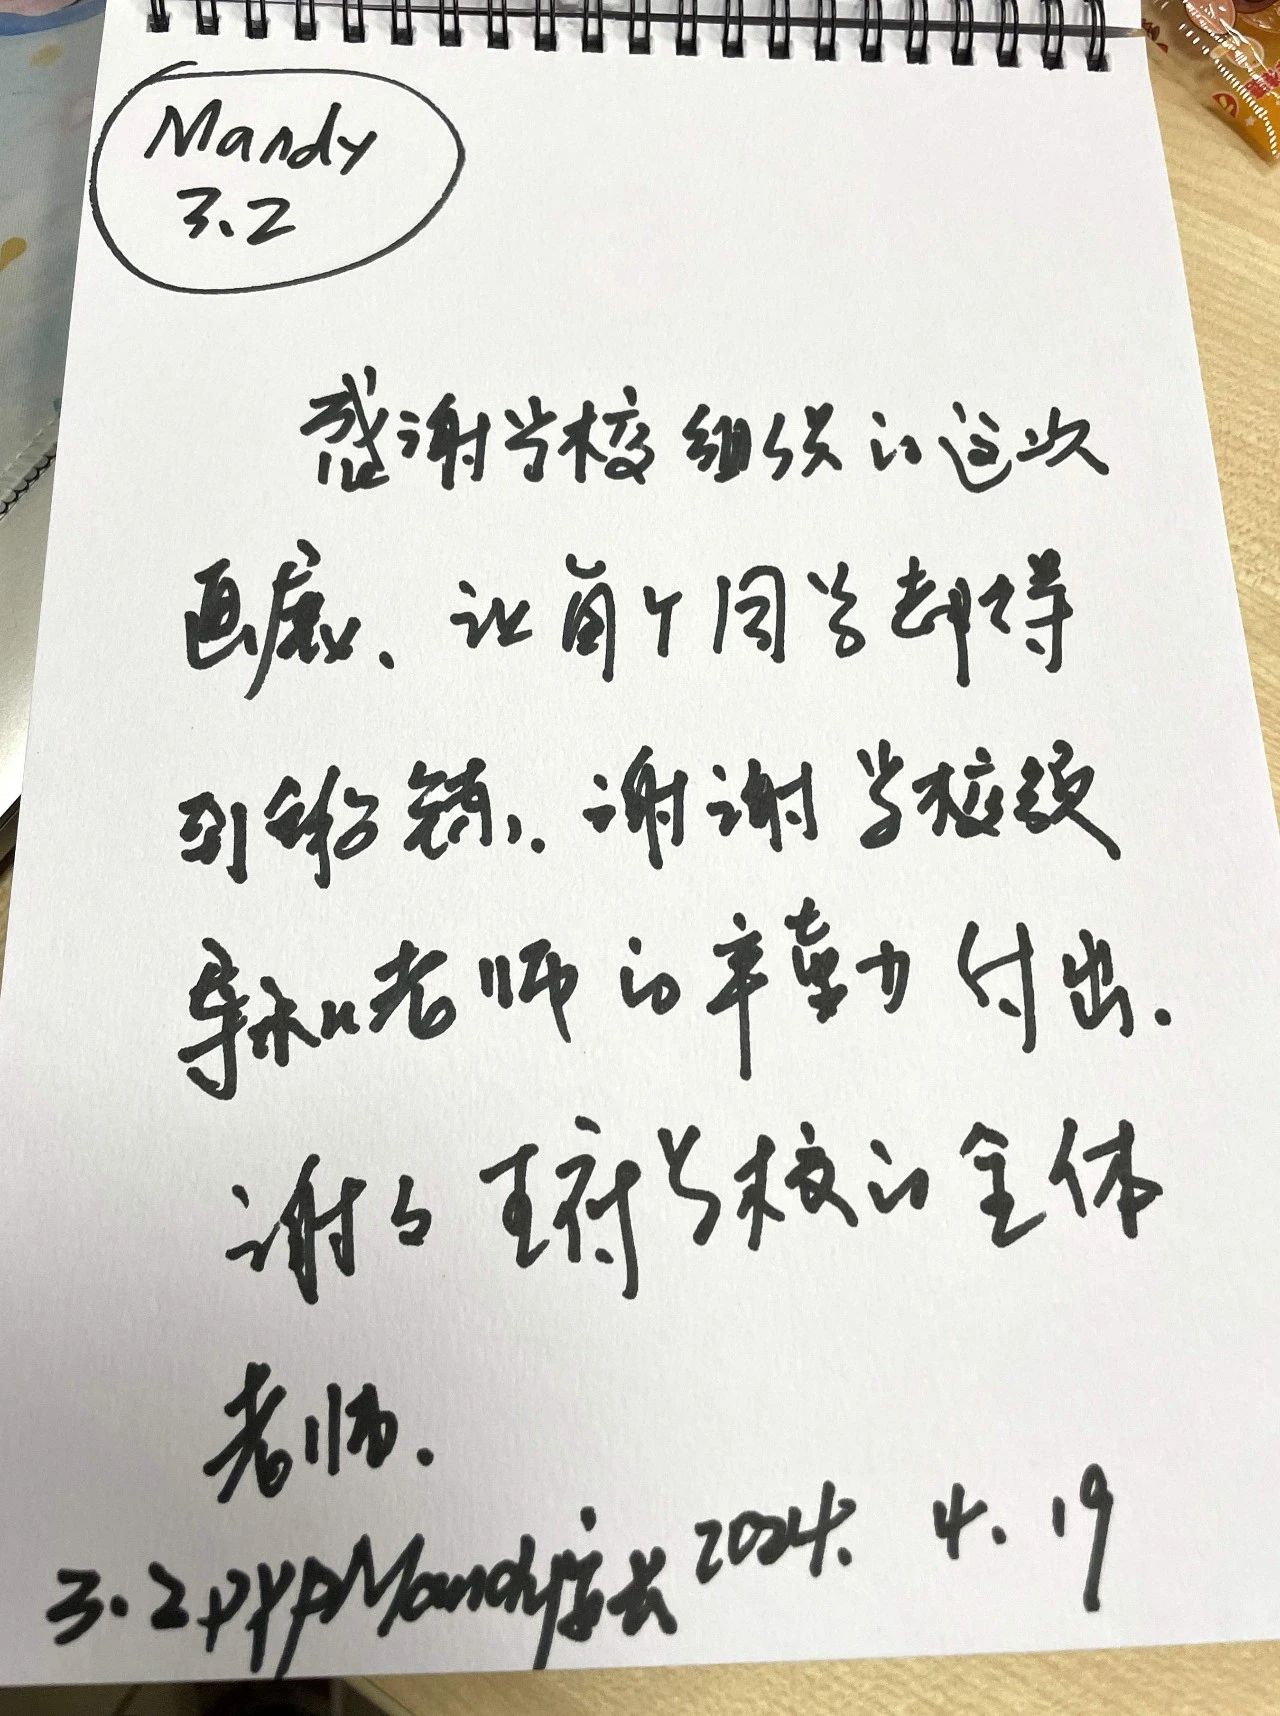 Mandy
3.2
感谢学校组织的这次
画展、让每个同学都得
到锻炼。谢谢学校领
导和老师的辛勤付出.
谢谢王府学校的全体
老师.
3.2pypMandy家长2024. 4. 19